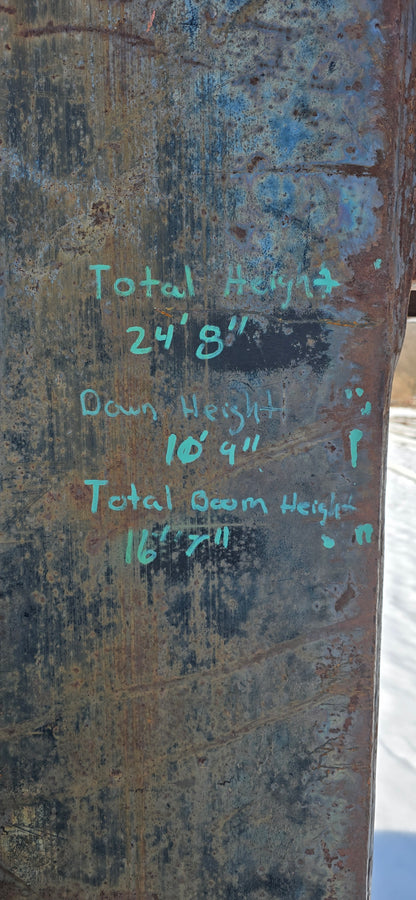 Total Height
24' 8"
Down Height
10' 9"
Total Boom Height
16' 7"